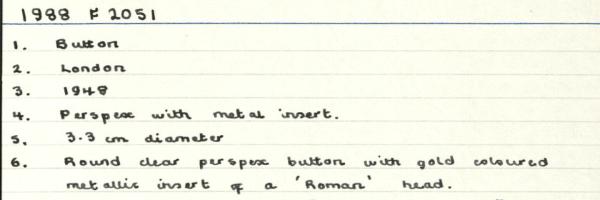 1988 F 2051
1. Button
2. London
3. 1948
4. Perspex with metal insert.
5. 3.3 cm diameter
6. Round clear perspex button with gold coloured
metallic insert of a 'Roman' head.